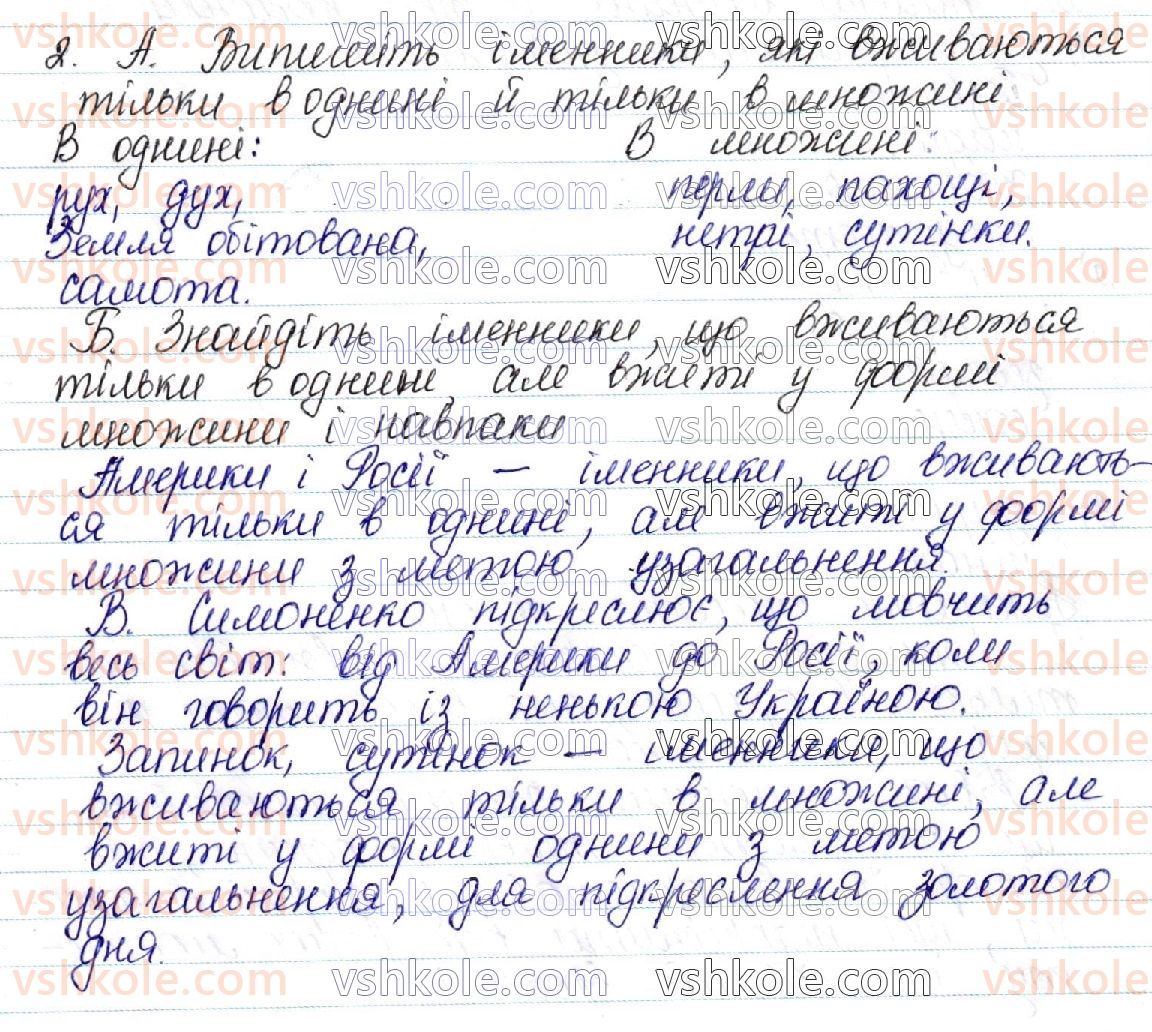 2. А. Випишіть іменники, які вживаються
тільки в однині й тільки в множині
В однині: В множині:
рух, дух, перли, пахощі,
Земля обітована, нетрі, сутінки.
самота.
Б. Знайдіть іменники, що вживаються
тільки в однині, але вжиті у формі
множини і навпаки
Америки і Росії – іменники, що вживають-
ся тільки в однині, але вжиті у формі
множини з метою узагальнення.
В. Симоненко підкреслює, що мовчить
весь світ: від Америки до Росії, коли
він говорить із ненькою Україною.
Запинок, сутінок – іменники, що
вживаються тільки в множині, але
вжиті у формі однини з метою
узагальнення, для підкреслення золотого
дня.